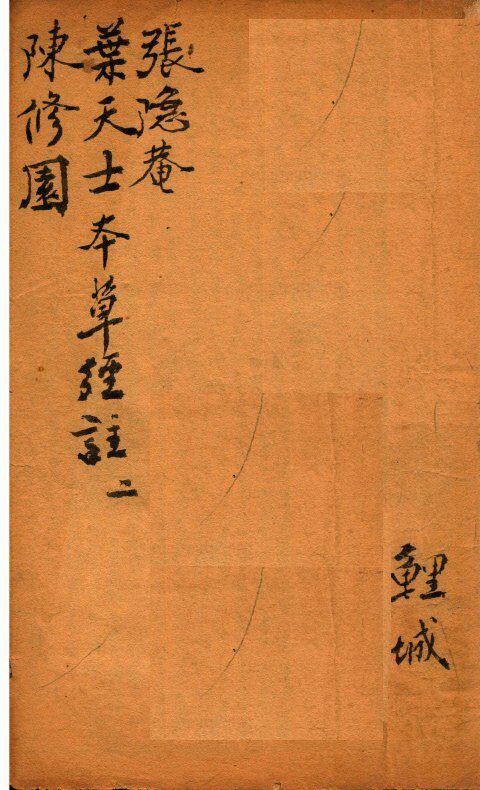 鯉城
張隐菴
葉天士本草經註 二
陳修園